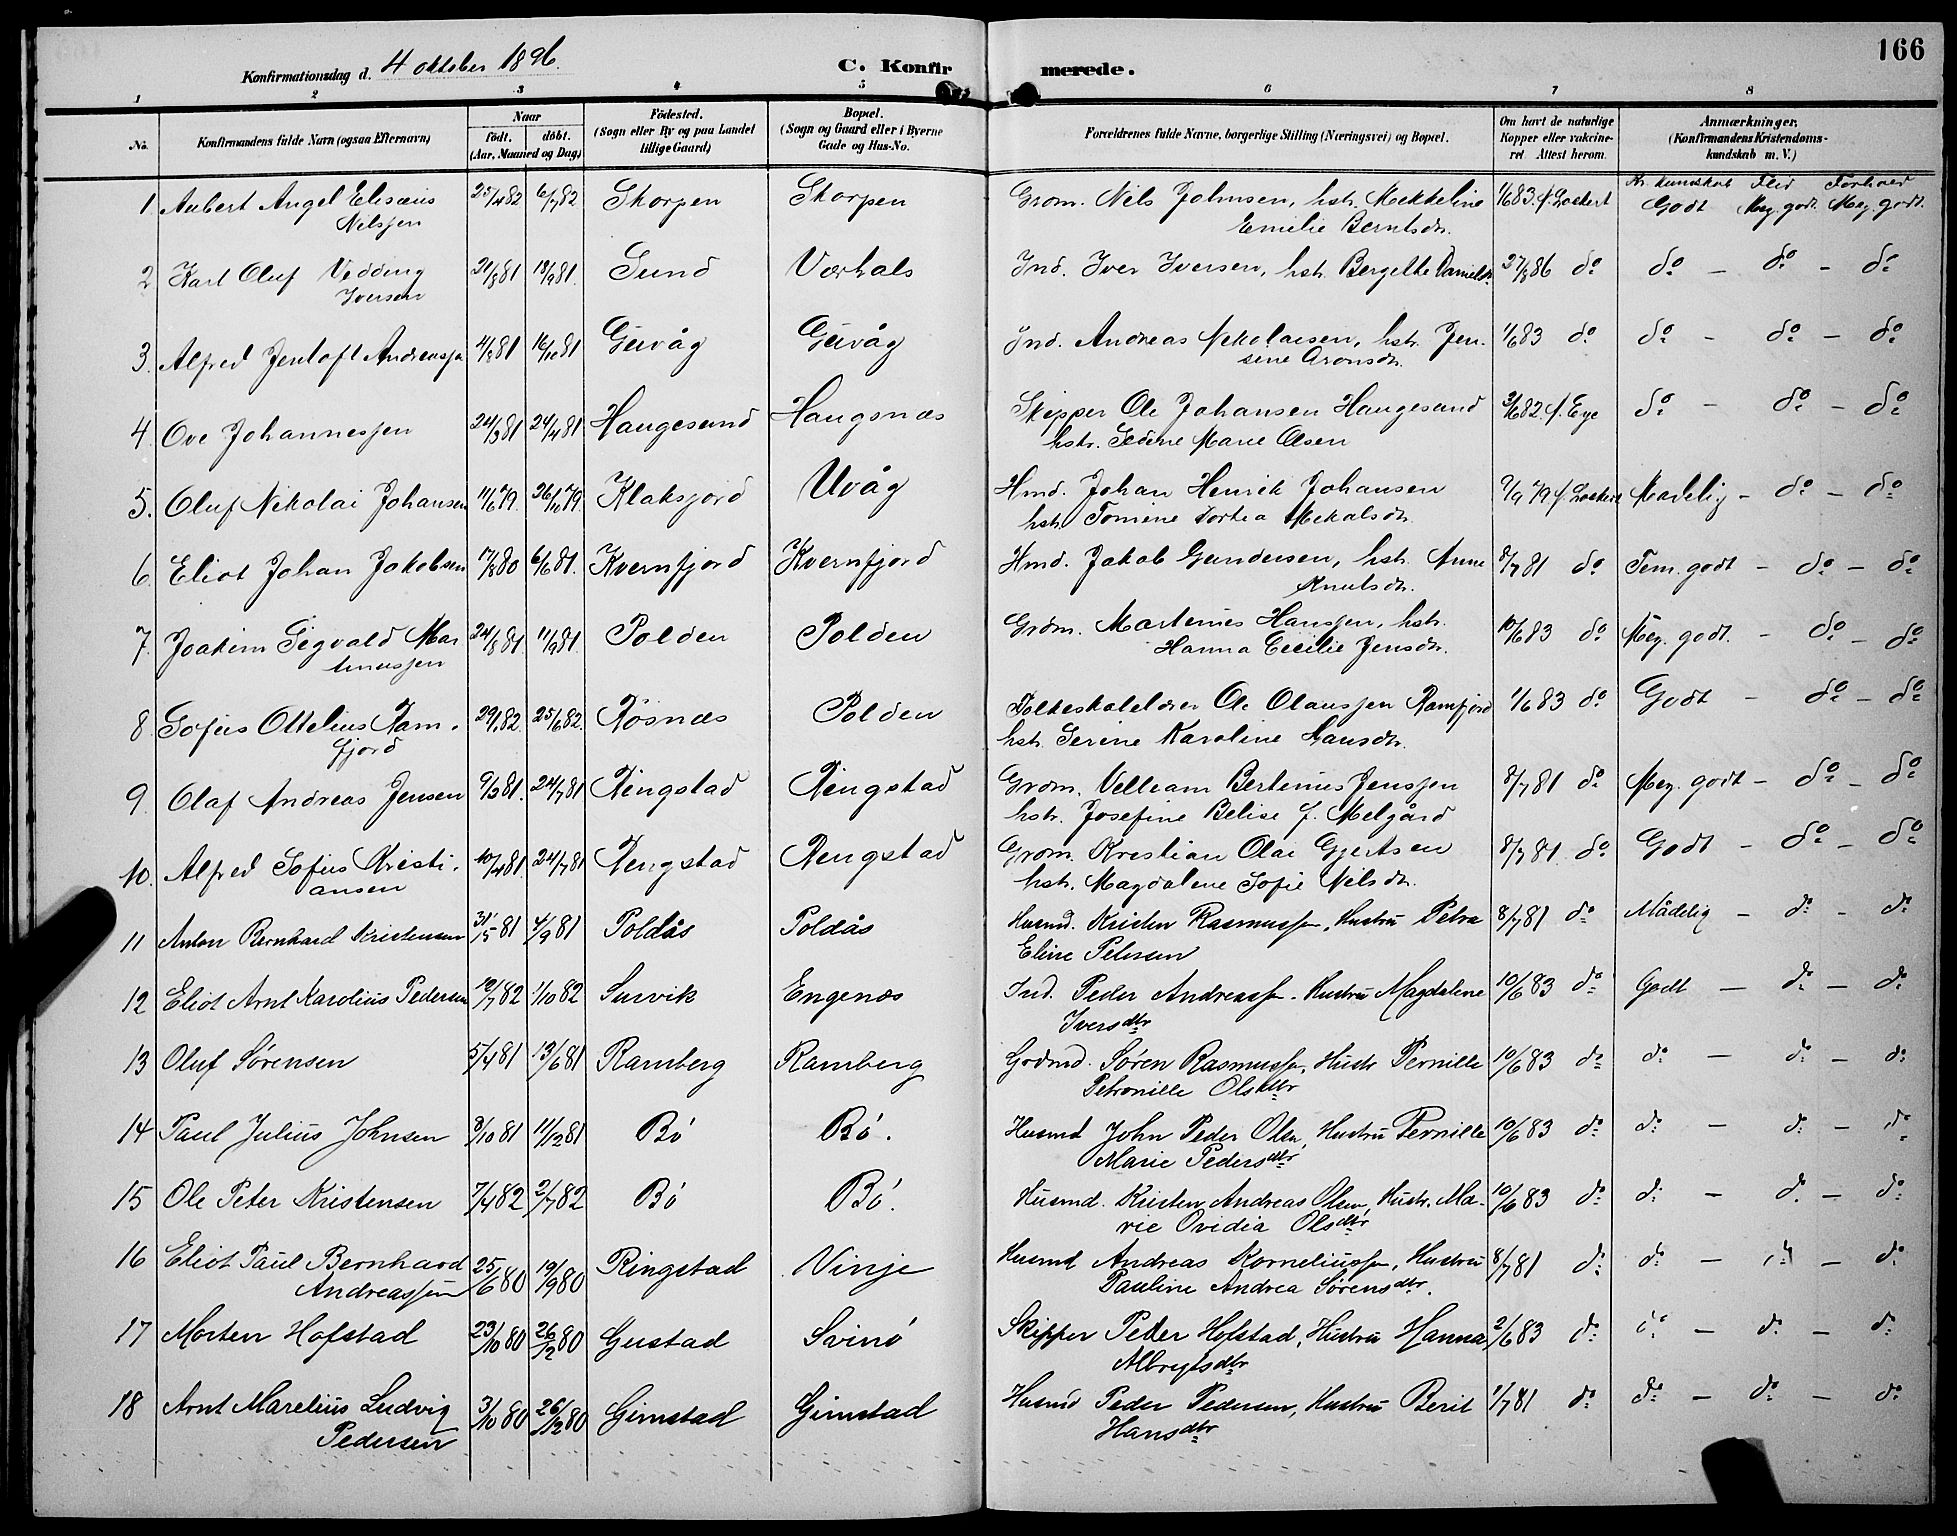 166
Konfirmationsdag d. 4 oktober 1896.
C. Konfirmerede.
1 2 3 4 5 6 7 8
No. Konfirmandens fulde Navn (ogsaa Efternavn) Naar født. døbt. (Aar, Maaned og Dag) Fødested. (Sogn eller By og paa Landet tillige Gaard) Bopæl. (Sogn og Gaard eller i Byerne Gade og Hus-No. Forældrenes fulde Navne, borgerlige Stilling (Næringsvei) og Bopæl. Om havt de naturlige Kopper eller vakcineret Attest herom. Anmærkninger. (Konfirmandens Kristendomskundskab m. V.)
Kr. kundskab Flid Forhold
1 Aubert Angel Eliseus 25/4 82 6/7 82 Skorpen Skorpen Grdm. Nils Johnsen, hstr. Mekkeline 1/6 83. f. Lockert Godt Meg. godt. Meg. godt.
Nilssen Emilie Berntsdtr.
2 Karl Oluf Vedding 21/8 81 18/9 81. Sund Vorhals Ind. Iver Iversen, hstr. Bergette Danielsdtr. 27/8 86 do do - do - do
Iversen
3. Alfred Jentoft Andreassen 4/8 81 16/10 81 Guvåg Guvåg Ind. Andreas Nikolaisen, hstr. Jen- 1/6 83 do do - do - do
sine Aronsdtr.
4. Ove Johannessen 24/3 81 24/4 81 Haugesund Haugsnæs Skipper Ole Johansen Haugesund 3/6 82. f. Eye do - do - do
hstr. Sedine Marie Olsen
5. Oluf Nikolai Johansen 11/6 79. 26/10 79 Klaksjord Uvåg Hmd. Johan Henrik Johansen 9/9 79 f. Lockert Maadelig - do - do
hstr. Tomine Dortea Mikalsdtr.
6. Eliot Johan Jakobsen 17/8 80 6/6 81. Kvernfjord Kvernfjord Hmd. Jakob Gundersen, hstr. Anne 8/7 81 do Tem. godt - do - do
Knutsdtr.
7. Joakim Sigvald Mar 24/8 81 11/9 81. Polden Polden Grdm. Martinus Hanssen, hstr. 10/6 83 do Meg. godt. - do - do
tinussen Hanna Cecilie Jensdtr.
8. Sofus Ottelius Ram- 29/1 82. 25/6 82. Røsnæs Polden Folkeskolelærer Ole Olaussen Ramfjord 1/6 83 do Godt - do - do
fjord hstr. Serine Karoline Hansdtr.
9. Olaf Andreas Jensen 9/3 81. 24/7 81 Ringstad Ringstad Grdm. Velleam Bertinius Jenssen 8/7 81 do Meg. godt - do - do
hstr. Josefine Belise f. Melgård
10. Alfred Sofus Kristi- 10/4 81. 24/7 81 Ringstad Ringstad Grdm. Kristian Olai Gjertsen 8/7 81. do Godt - do - do
ansen hstr. Magdalene Sofie Nilsdtr.
11 Anton Bernhard Kristensen 31/5 81 4/9 81 Poldås Poldås Husmd. Kristen Rasmussen, Hustru Petra 8/7 81 do Mådelig - do - do
Eline Petersen
12 Eliot Arnt Karolius Pedersen 10/7 82 1/10 82 Survik Engenæs Ind. Peder Andreassen. Hustru Magdalene 10/6 83 do Godt - do - do
Iversdtr
13 Oluf Sørensen 5/4 81 13/6 81 Ramberg Ramberg Grdmd. Søren Rasmussen, Hustr Pernille 10/6 83 do do - do - do
Petronille Olsdtr
14 Paul Julius Johnsen 3/10 81 11/12 81 Bø Bø. Husmd John Peder Olsn, Hustru Pernille 10/6 83 do do - do - do
Marie Pedersdtr
15 Ole Peter Kristensen 7/4 82 2/7 82 Bø Bø. Husmd. Kristen Andreas Olsen, Hustr. Ma- 10/6 83 do do - do - do
rie Ovidia Olsdtr
16 Eliot Paul Bernhard 25/6 80 19/9 80 Ringstad Vinje Husmd Andreas Korneliussen, Hustru 8/7 81 do do - do - do
Andreassen Pauline Andrea Sørensdtr.
17 Morten Hofstad 23/10 80 26/12 80 Gustad Svinø Skipper Peder Hofstad, Hustru Hanna 2/6 83 do do - do - do
Albregtsdtr
18 Arnt Marelius Ludvig 3/10 80 26/12 80 Gimstad Gimstad Husmd Peder Pedersen, Hustru Berit 1/7 81 do do - do - do
Pedersen Hansdtr